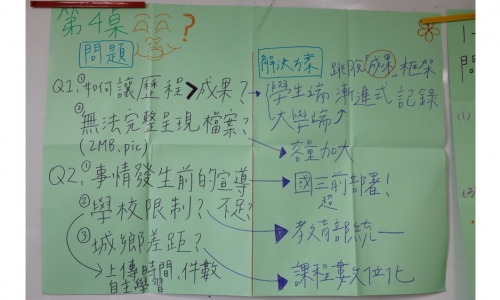 第4桌 ?
問題
Q1.①如何讓歷程>成果?
②無法完整呈現檔案?
(2MB.pic)
Q2.①事情發生前的宣導
②學校限制?不足?
③城鄉差距?
上傳時間、件數
自主學習
解決方案 跳脫"成果"框架
學生端漸進式記錄
大學端↑
容量加大
國三前部署!
超
教育部統一
課程數位化